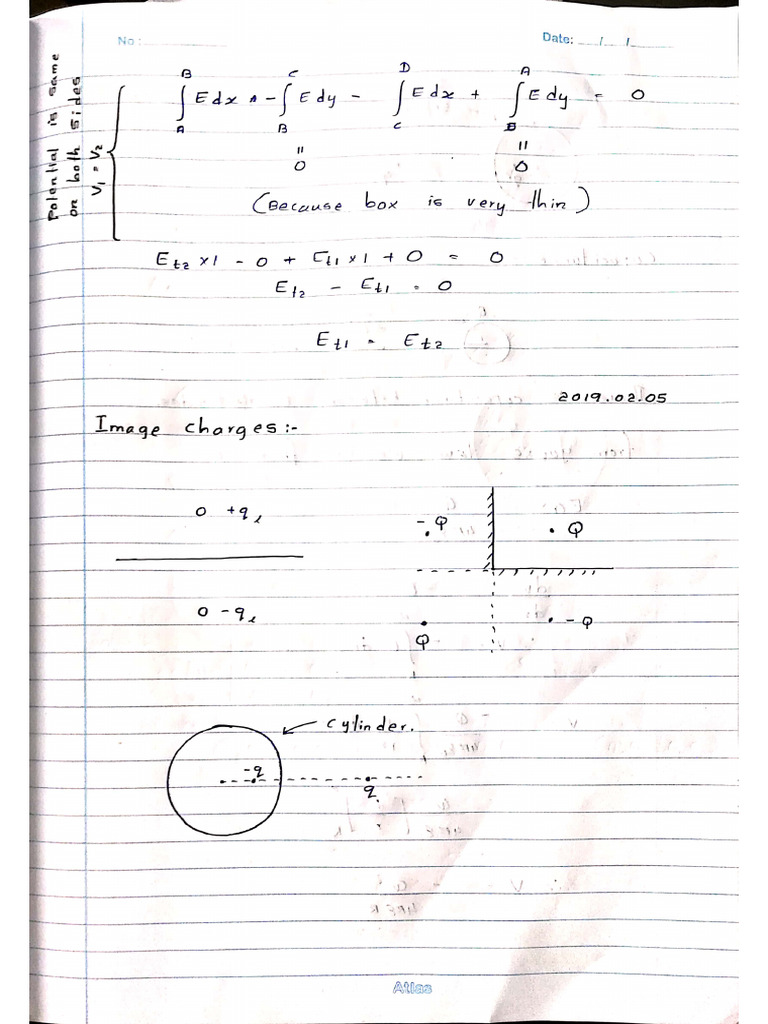 No: Date: / /
Potential is same
on both sides
V₁ = V₂
∫_A^B E dx - ∫_B^C E dy - ∫_C^D E dx + ∫_B^A E dy = 0
= 0 = 0
(Because box is very thin)
E_t2 x1 - 0 + E_t1 x1 + 0 = 0
E_t2 - E_t1 = 0
E_t1 = E_t2
2019.02.05
Image charges:-
0 +q_l
-Q Q
0 -q_l
Q -Q
cylinder.
-q
q
Atlas